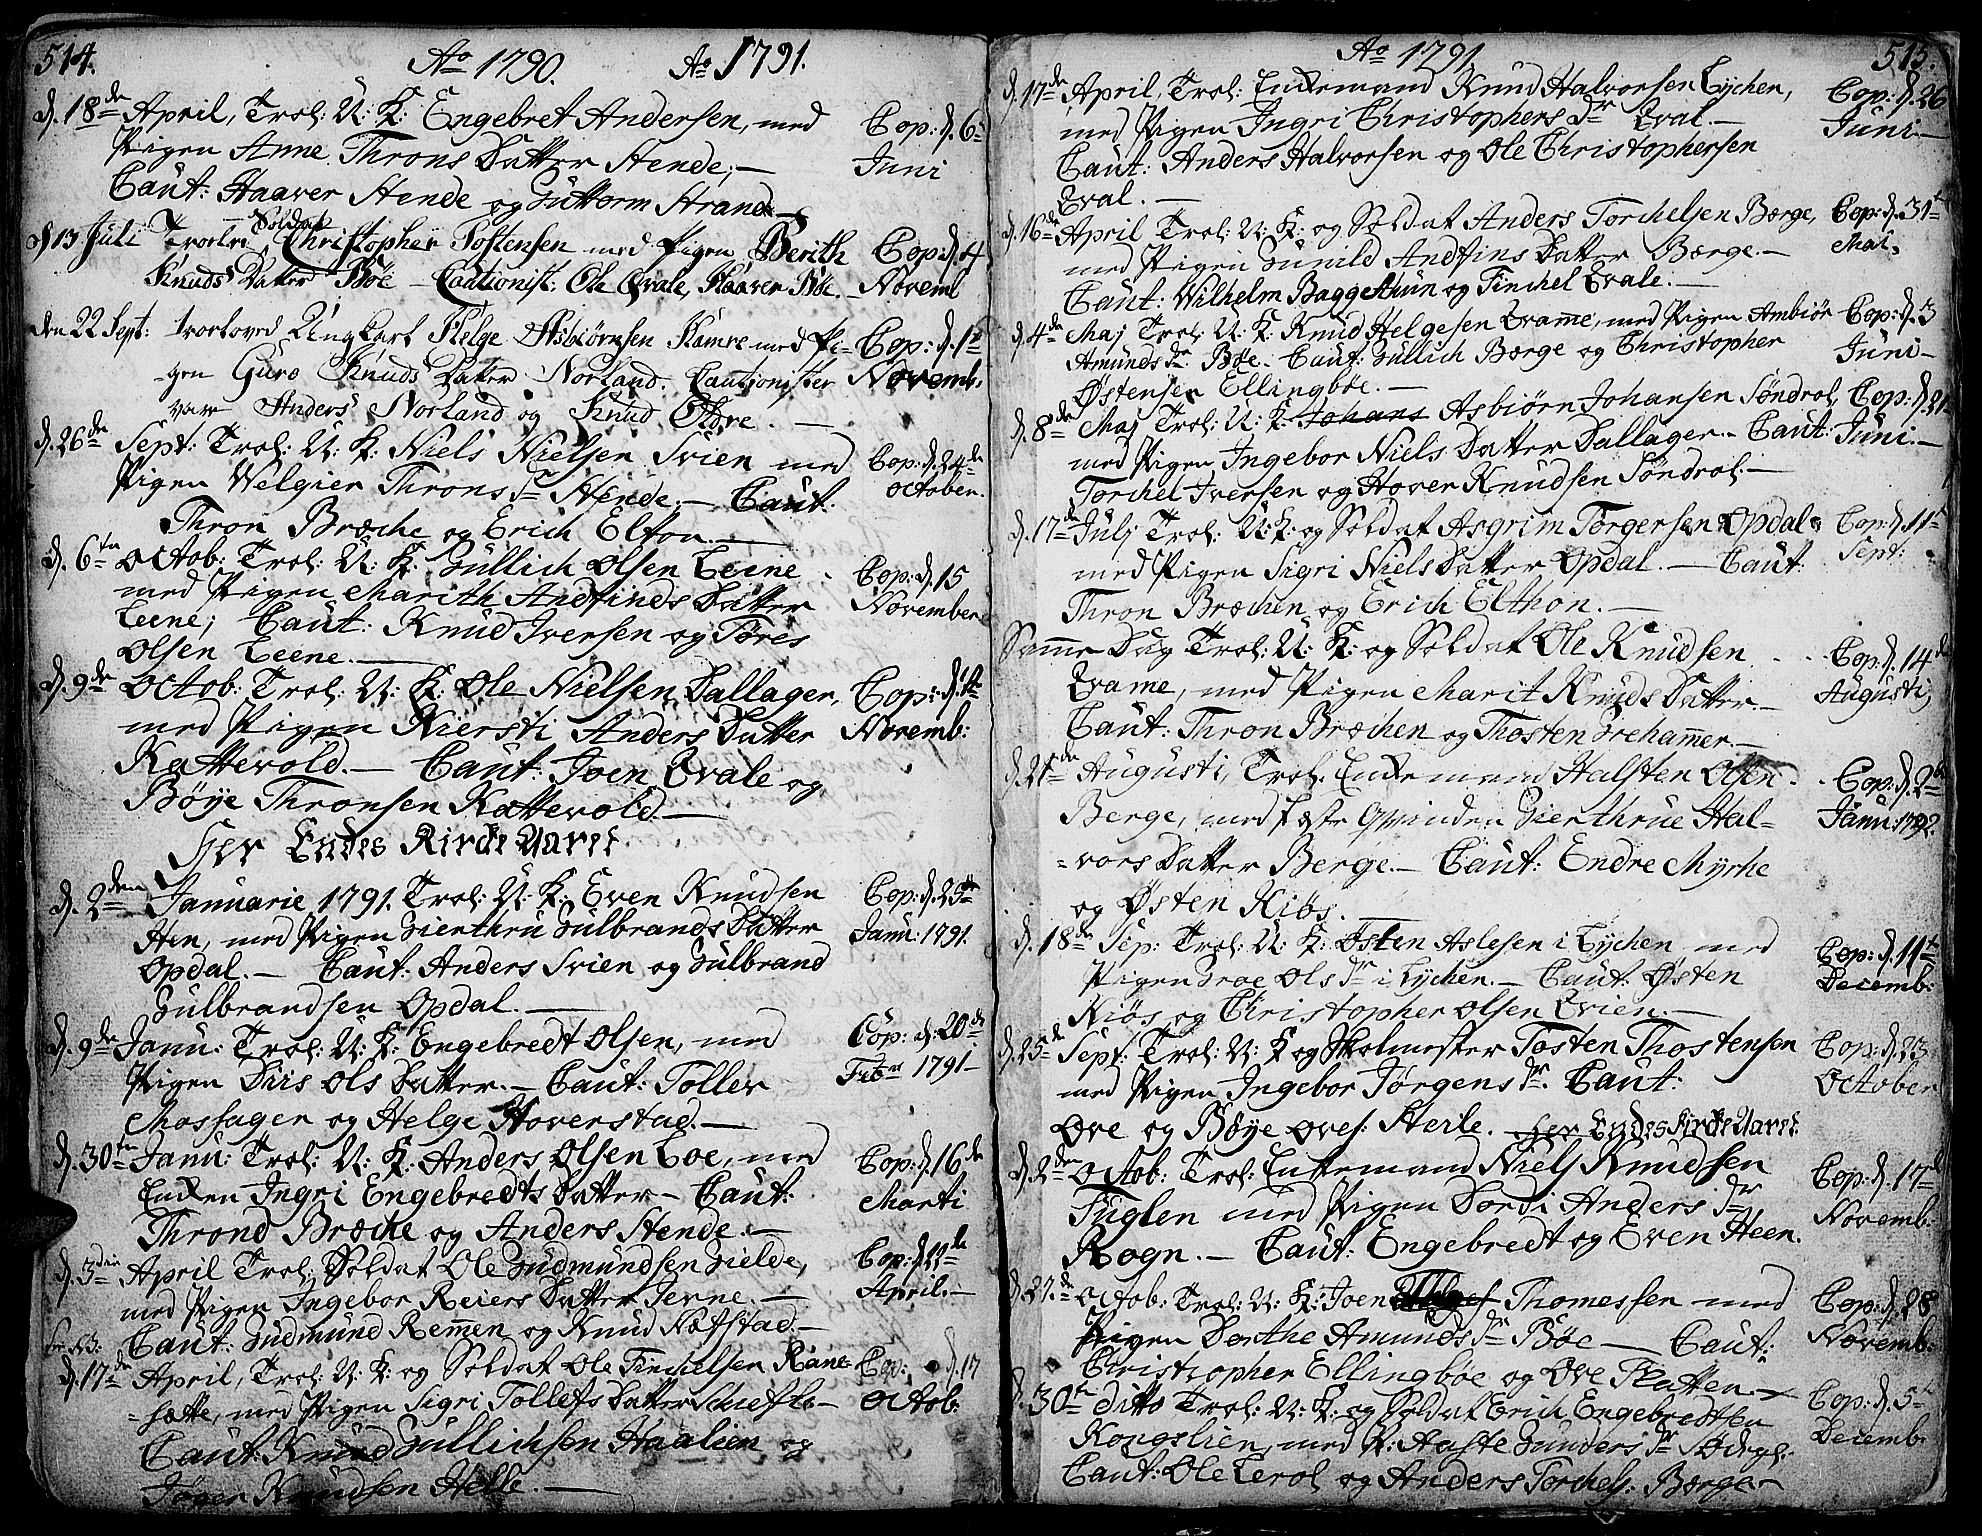 514. Ao 1790. Ao 1791.
d. 18de April, Trol: U: K: Engebret Andersen, med Cop: d. 6te
Pigen Anne Throns Datter Hende;— Juni
Caut: Haaver Hende og Guttorm Strand.
d 13 Juli Soldat Christopher Tostensen med Pigen Berith Cop: d. 4
Knuds Datter Bøe — Cautionist: Ole Qvale, Haaver Bøe.— Noveml
den 22 Sept: trorloved Ungkarl Helge Asbiørnsen Hamre med Pi- Cop: d. 1te
-gen Guro Knuds Datter Norland. Cautionister Novemb:
var Anders Norland og Knud Oldre. —
d. 26de Sept: Trol: U: K: Niels Nielsen Svien med Cop: d. 24de
Pigen Welgier Throns Dr Hende.— Caut: October.
Thron Bræche og Erich Elton.—
d. 6te Octob: Trol: U: K: Gullich Olsen Leene Cop: d. 15
med Pigen Marith Andfinds Datter November
Leene; Caut: Knud Iversen og Tøres
Olsen Leene.—
d. 9de Octob: Trol: U: K: Ole Nielsen Dallager, Cop: d. 1te
med Pigen Kiersti Anders Datter Novemb:
Kattevold.— Caut: Joen Qvale og
Bøye Thronsen Kattevold.—
Her Endes Kirke Aaret
d. 2den Januarie 1791. Trol: U: K: Even Knudsen Cop: d. 25de
Hen, med Pigen Gierthru Gulbrands Datter Janu: 1791.
Opdal.— Caut: Anders Svien og Gulbrand
Gulbrandsen Opdal.—
d. 9de Janu: Trol: U: K: Engebredt Olsen, med Cop: d: 20de
Pigen Siris Ols Datter.— Caut: Tollev Febr 1791—
Mossager og Helge Hoverstad.—
d. 30te Janu: Trol: U: K: Anders Olsen Loe, med Cop: d. 16de
Enken Ingri Engebredts Datter— Caut: Marti
Thrond Bræche og Anders Hende.—
d. 3die April Trol: Soldat Ole Gudmundsen Gielde, Cop: d. 22de
med Pigen Ingebor Reiers Datter Jerne.— April.—
Caut: Gudmund Remmen og Knud Nøfstad—
d. 17de April, Trol: U: K: og Soldat Ole Tinchelsen Rane- Cop: d. 17
-sætte, med Pigen Sigri Tollefs Datter Octob:
Caut: Knud Gullichsen Haalien og
Jøger Knudsen Helle.—
Ao 1791 515.
d. 17de April, Trol: Enkemand Knud Halvorsen Lychen, Cop: d. 26
med Pigen Ingri Christophers Dr Qval.— Juni.—
Caut: Anders Halvorsen og Ole Christophersen
Qval.—
d. 16de April Trol: U: K: og Soldat Anders Torchelsen Børge, Cop: d. 31te
med Pigen Gunild Andfins Datter Børge.— Mai.
Caut: Wilhelm Baggethun og Tinchel Qvale.—
d. 4de Maj Trol: U: K: Knud Helgesen Qvamme, med Pigen Ambiør Cop: d. 3
Amunds Dr Bøe. Caut: Gullich Børge og Christopher Juni—
Østensen Ellingbøe.—
d. 8de Maj Trol: U: K: Johans Asbiørn Johansen Søndrol, Cop: d. 21
med Pigen Ingebor Niels Datter Dallager. Caut: Juni.—
Torchel Iversen og Hover Knudsen Søndrol:—
d. 17de Julj Trol: U: K: og Soldat Asgrim Torgersen Opdal Cop: d. 11te
med Pigen Sigri Niels Datter Opdal.— Caut: Sept:
Thron Bræchen og Erich Elthon.—
Samme Dag Trol: U: K: og Soldat Ole Knudsen Cop: d. 14de
Qvame, med Pigen Marit Knuds Datter.— Augusti,
Caut: Thron Bræchen og Thosten Grehammer.—
d. 21de Augusti, Trol: Enkemand Halsten Olsen Cop: d. 2de
Berge, med Fæste Qvinden Gierthrue Hal- Janu: 1792.
-vors Datter Berge.— Caut: Endre Myrhe
og Østen Kiøs.—
d. 18de Sep: Trol: U: K: Østen Aslesen i Lychen med Cop: d. 11te
Pigen Groe Ols Dr i Lychen.— Caut: Østen Decemb:
Kiøs og Christopher Olsen Qvien.—
d. 25de Sept: Trol: U: K og Skolmester Tosten Thostensen Cop: d. 23
med Pigen Ingebor Jørgens Dr. Caut: October
Ove og Bøye Oves: Herle. Her Endes Kirke Aaret
d. 2den Octob: Trol: Enkemand Niels Knudsen Cop: d. 17de
Fuglen med Pigen Dordi Anders Dr Novemb:
Rogn.— Caut: Engebredt og Even Heen.
d. 27de Octob: Trol: U: K: Joen Thomessen med Cop: d. 28
Pigen Dorthe Amunds Dr Bøe— Caut: Novemb:
Christopher Ellingbøe og Ove Flatten.—
d. 30te ditto Trol: U: K: og Soldat Erich Engebredtsen Cop: d. 5te
Kongslien, med P: Aaste Gunders Dr Decemb:
Caut: Ole Lerol og Anders Torchels: Børge—